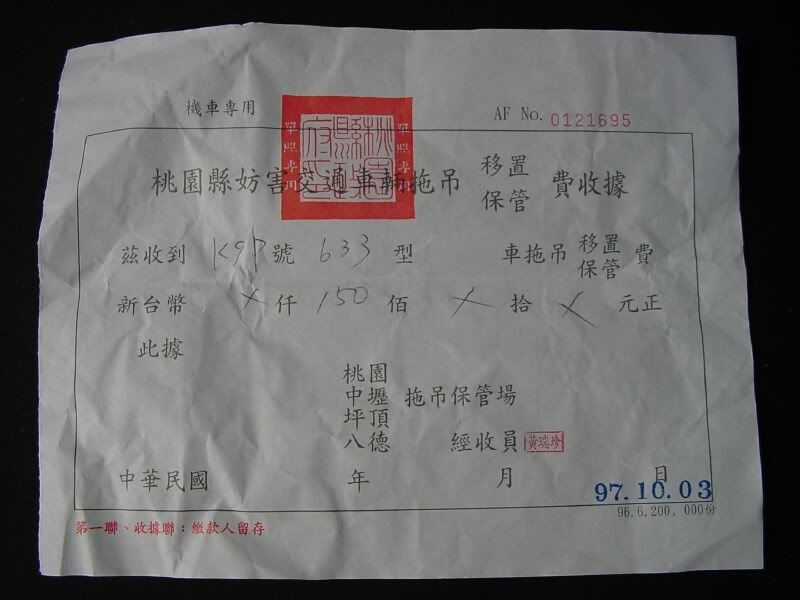 機車專用
AF No. 0121695
單照專用
單照專用
桃園縣妨害交通車輛拖吊 移置 保管 費收據
茲收到 K97 號 633 型 車拖吊 移置 保管 費
新台幣 X 仟 150 佰 X 拾 X 元正
此據
桃園
中壢 拖吊保管場
坪頂
八德 經收員 黃瑞珍
中華民國 年 月 日
97.10.03
96.6.200,000份
第一聯、收據聯：繳款人留存